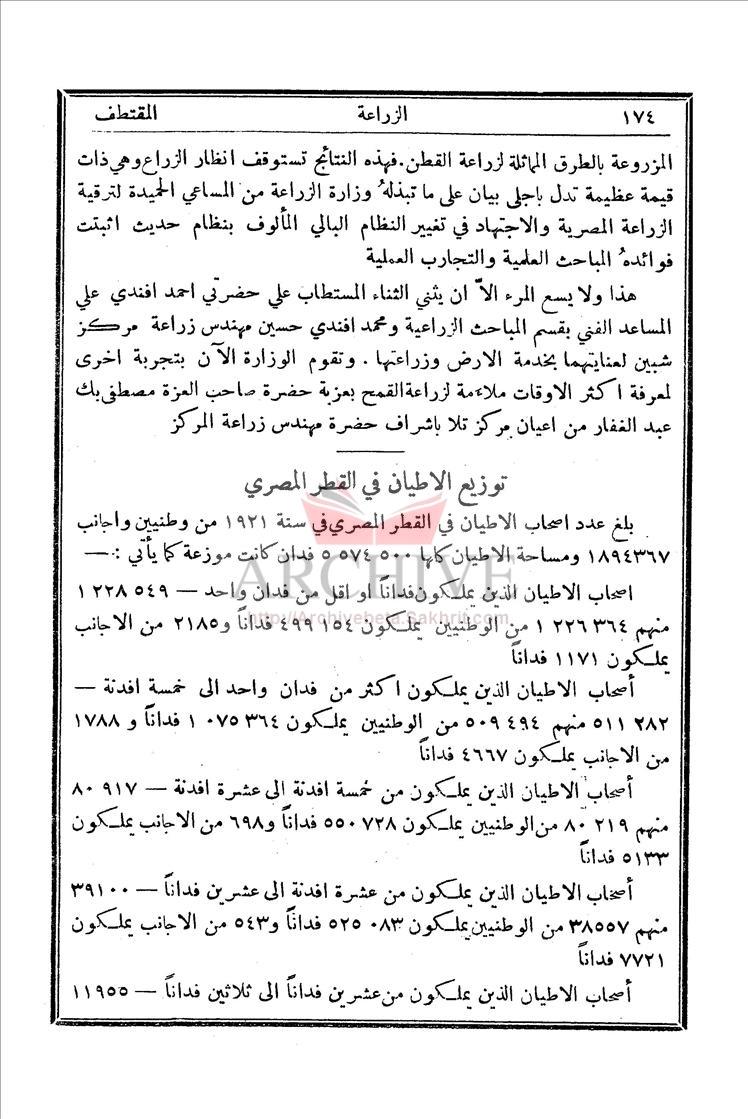 ١٧٤ الزراعة المقتطف
المزروعة بالطرق المماثلة لزراعة القطن . فهذه النتائج تستوقف انظار الزراع وهي ذات
قيمة عظيمة تدل باجلى بيان على ما تبذلهُ وزارة الزراعة من المساعي الحميدة لترقية
الزراعة المصرية والاجتهاد في تغيير النظام البالي المألوف بنظام حديث اثبتت
فوائدهُ المباحث العلمية والتجارب العملية
هذا ولا يسع المرء الاّ ان يثني الثناء المستطاب علي حضرتي احمد افندي علي
المساعد الفني بقسم المباحث الزراعية ومحمد افندي حسين مهندس زراعة مركز
شبين لعنايتهما بخدمة الارض وزراعتها . وتقوم الوزارة الآن بتجربة اخرى
لمعرفة اكثر الاوقات ملاءمة لزراعة القمح بعزبة حضرة صاحب العزة مصطفى بك
عبد الغفار من اعيان مركز تلا باشراف حضرة مهندس زراعة المركز
توزيع الاطيان في القطر المصري
بلغ عدد اصحاب الاطيان في القطر المصري في سنة ١٩٢١ من وطنيين واجانب
١٨٩٤٣٦٧ ومساحة الاطيان كلها ٥٠٠ ٥٧٤ ٥ فدان كانت موزعة كما يأتي :—
اصحاب الاطيان الذين يملكون فداناً او اقل من فدان واحد — ٥٤٩ ٢٢٨ ١
منهم ٣٦٤ ٢٢٦ ١ من الوطنيين يملكون ١٥٤ ٤٩٩ فداناً و٢١٨٥ من الاجانب
يملكون ١١٧١ فداناً
أصحاب الاطيان الذين يملكون اكثر من فدان واحد الى خمسة افدنة —
٢٨٢ ٥١١ منهم ٤٩٤ ٥٠٩ من الوطنيين يملكون ٣٦٤ ٠٧٥ ١ فداناً و ١٧٨٨
من الاجانب يملكون ٤٦٦٧ فداناً
أصحاب الاطيان الذين يملكون من خمسة افدنة الى عشرة افدنة — ٩١٧ ٨٠
منهم ٢١٩ ٨٠ من الوطنيين يملكون ٧٢٨ ٥٥٠ فداناً و٦٩٨ من الاجانب يملكون
٥١٣٣ فداناً
أصحاب الاطيان الذين يملكون من عشرة افدنة الى عشرين فداناً — ٣٩١٠٠
منهم ٣٨٥٥٧ من الوطنيين يملكون ٠٨٣ ٥٢٥ فداناً و٥٤٣ من الاجانب يملكون
٧٧٢١ فداناً
أصحاب الاطيان الذين يملكون من عشرين فداناً الى ثلاثين فداناً — ١١٩٥٥
ARCHIVE
http://Archivebeta.Sakhrit.com